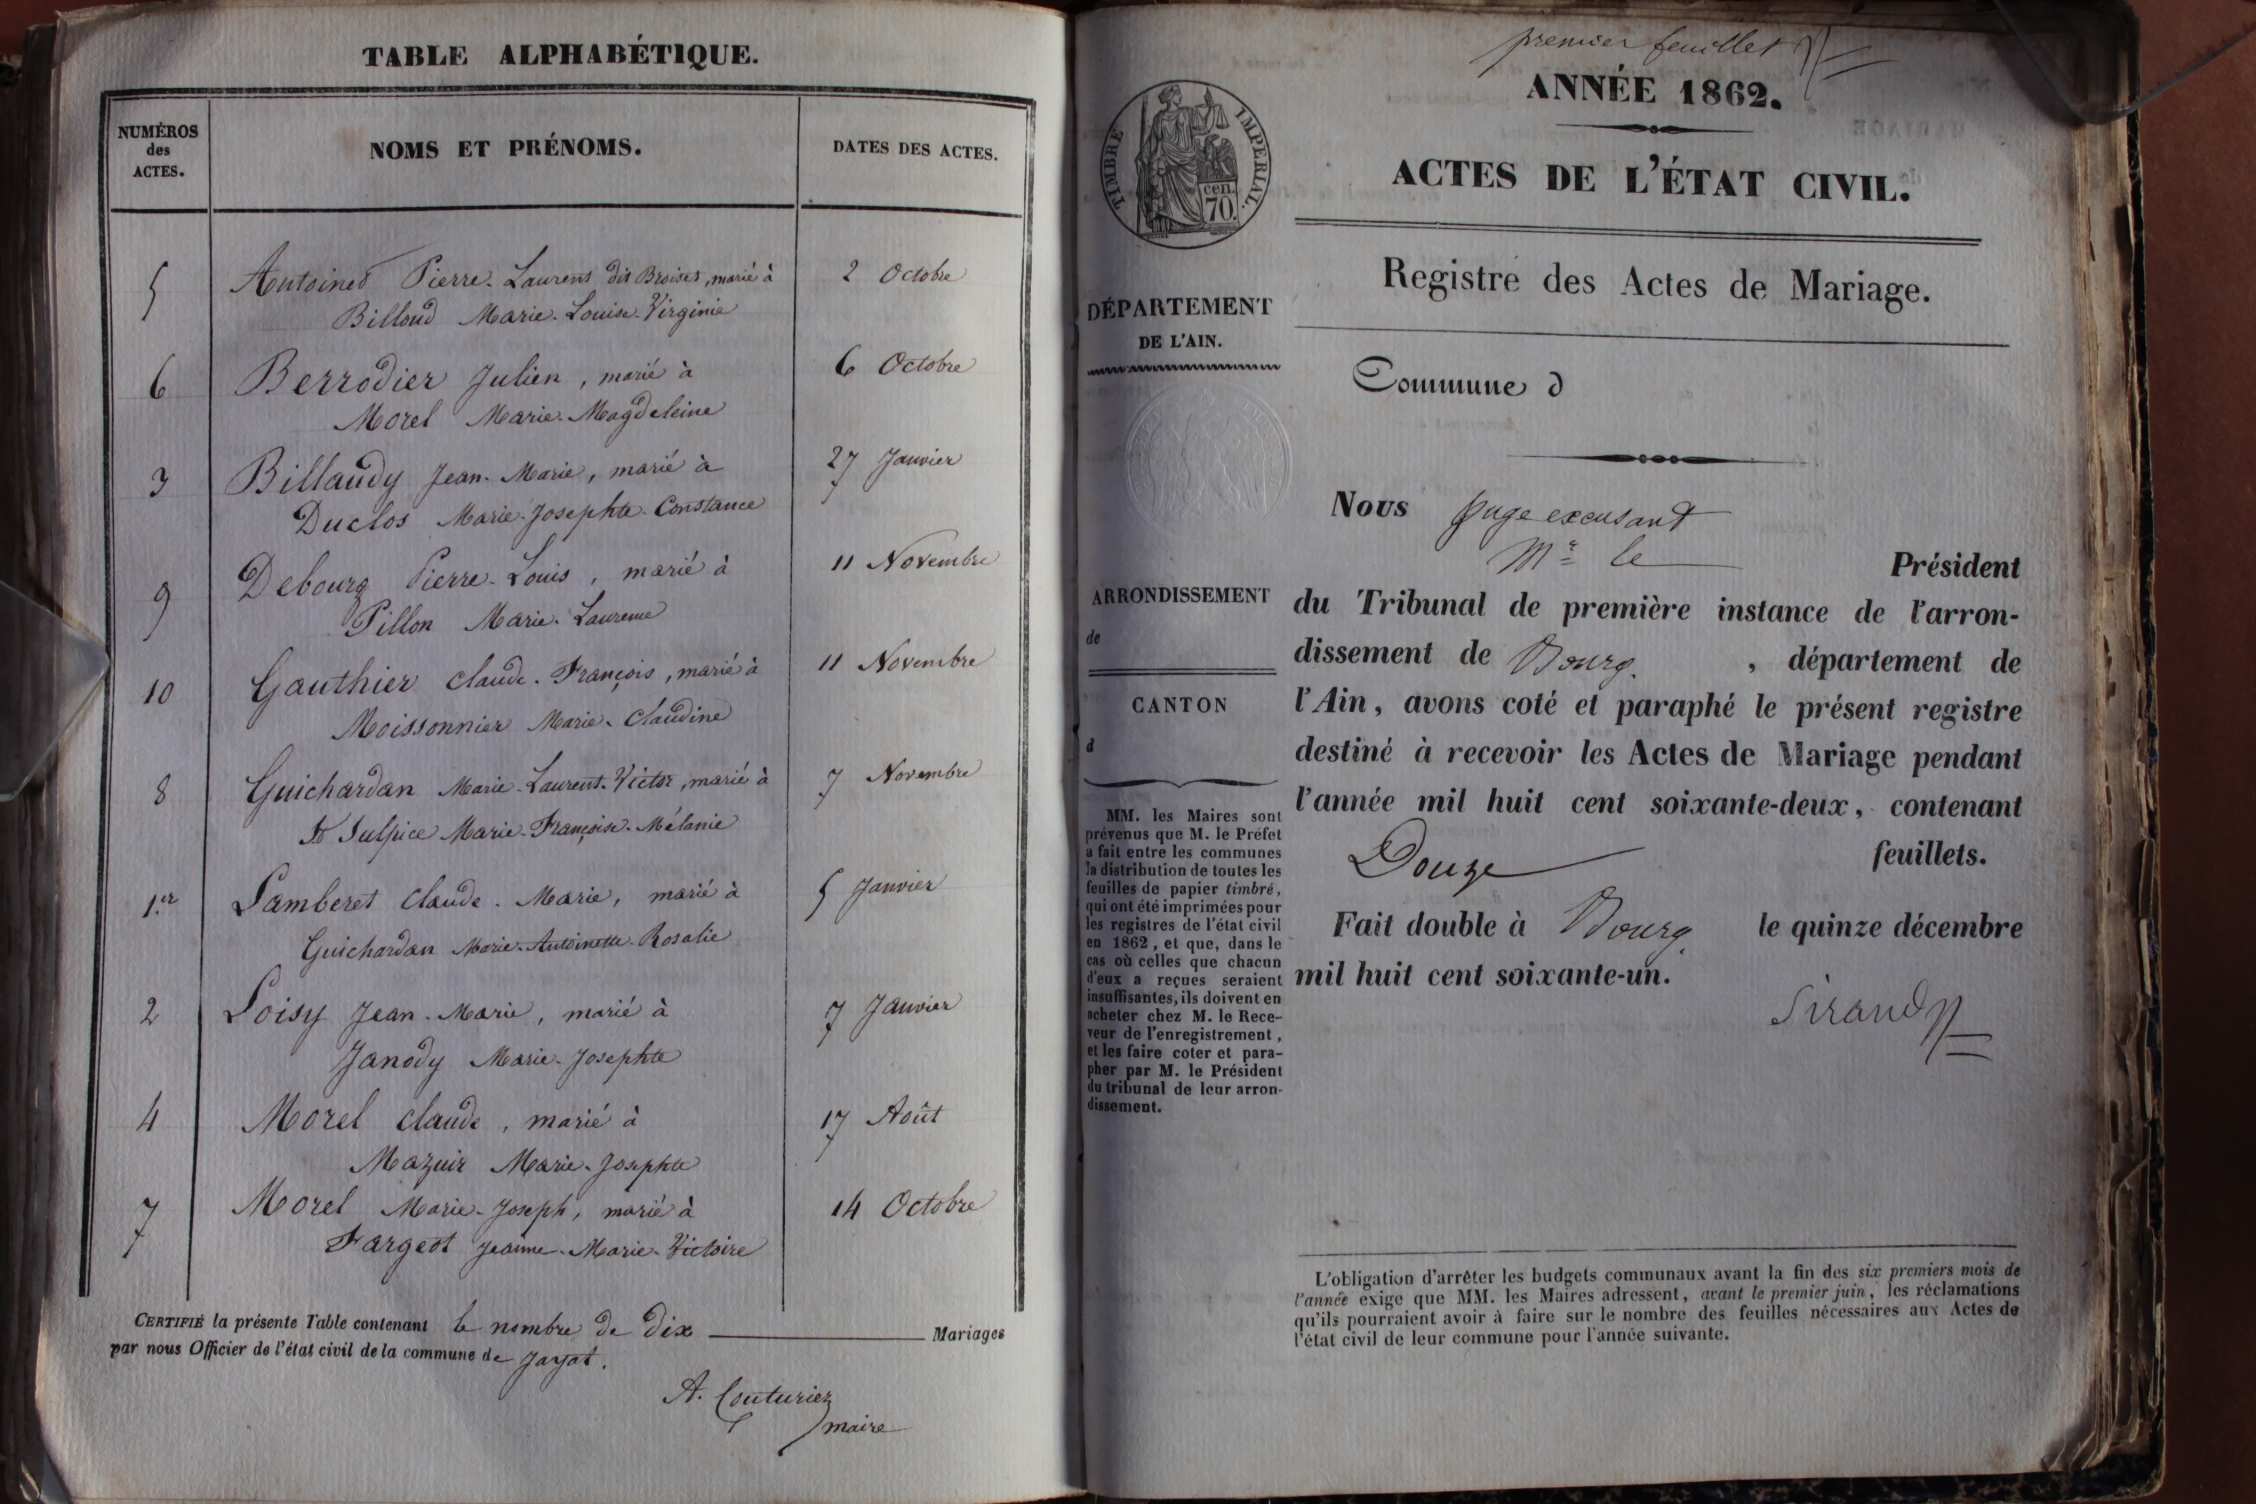 TABLE ALPHABÉTIQUE.
NUMÉROS
des
ACTES.
NOMS ET PRÉNOMS.
DATES DES ACTES.
5 Antoinet Pierre-Laurent dit Broiset, marié à 2 Octobre
Billoud Marie-Louise-Virginie
6 Berrodier Julien, marié à 6 Octobre
Morel Marie-Magdeleine
3 Billaudy Jean-Marie, marié à 27 Janvier
Duclos Marie-Josephte-Constance
9 Debourg Pierre-Louis, marié à 11 Novembre
Pillon Marie-Laurence
10 Gauthier Claude-François, marié à 11 Novembre
Moissonnier Marie-Claudine
8 Guichardan Marie-Laurent-Victor, marié à 7 Novembre
St Sulpice Marie-Françoise-Mélanie
1.er Lamberet Claude-Marie, marié à 5 Janvier
Guichardan Marie-Antoinette-Rosalie
2 Loisy Jean-Marie, marié à 7 Janvier
Janody Marie-Josephte
4 Morel Claude, marié à 17 Août
Mazuir Marie-Josephte
7 Morel Marie-Joseph, marié à 14 Octobre
Fargeot Jeanne-Marie-Victoire
CERTIFIÉ la présente Table contenant le nombre de dix Mariages
par nous Officier de l'état civil de la commune de Jayat.
A. Couturier
maire
premier feuillet
ANNÉE 1862.
TIMBRE IMPERIAL.
cen.
70.
ACTES DE L'ÉTAT CIVIL.
Registre des Actes de Mariage.
DÉPARTEMENT
DE L'AIN.
Commune d
ARRONDISSEMENT
de
CANTON
d
MM. les Maires sont
prévenus que M. le Préfet
a fait entre les communes
la distribution de toutes les
feuilles de papier timbré,
qui ont été imprimées pour
les registres de l'état civil
en 1862, et que, dans le
cas où celles que chacun
d'eux a reçues seraient
insuffisantes, ils doivent en
acheter chez M. le Rece-
veur de l'enregistrement,
et les faire coter et para-
pher par M. le Président
du tribunal de leur arron-
dissement.
Nous juge excusant
Mr le Président
du Tribunal de première instance de l'arron-
dissement de Bourg, département de
l'Ain, avons coté et paraphé le présent registre
destiné à recevoir les Actes de Mariage pendant
l'année mil huit cent soixante-deux, contenant
Douze feuillets.
Fait double à Bourg le quinze décembre
mil huit cent soixante-un.
Sirand
L'obligation d'arrêter les budgets communaux avant la fin des six premiers mois de
l'année exige que MM. les Maires adressent, avant le premier juin, les réclamations
qu'ils pourraient avoir à faire sur le nombre des feuilles nécessaires aux Actes de
l'état civil de leur commune pour l'année suivante.